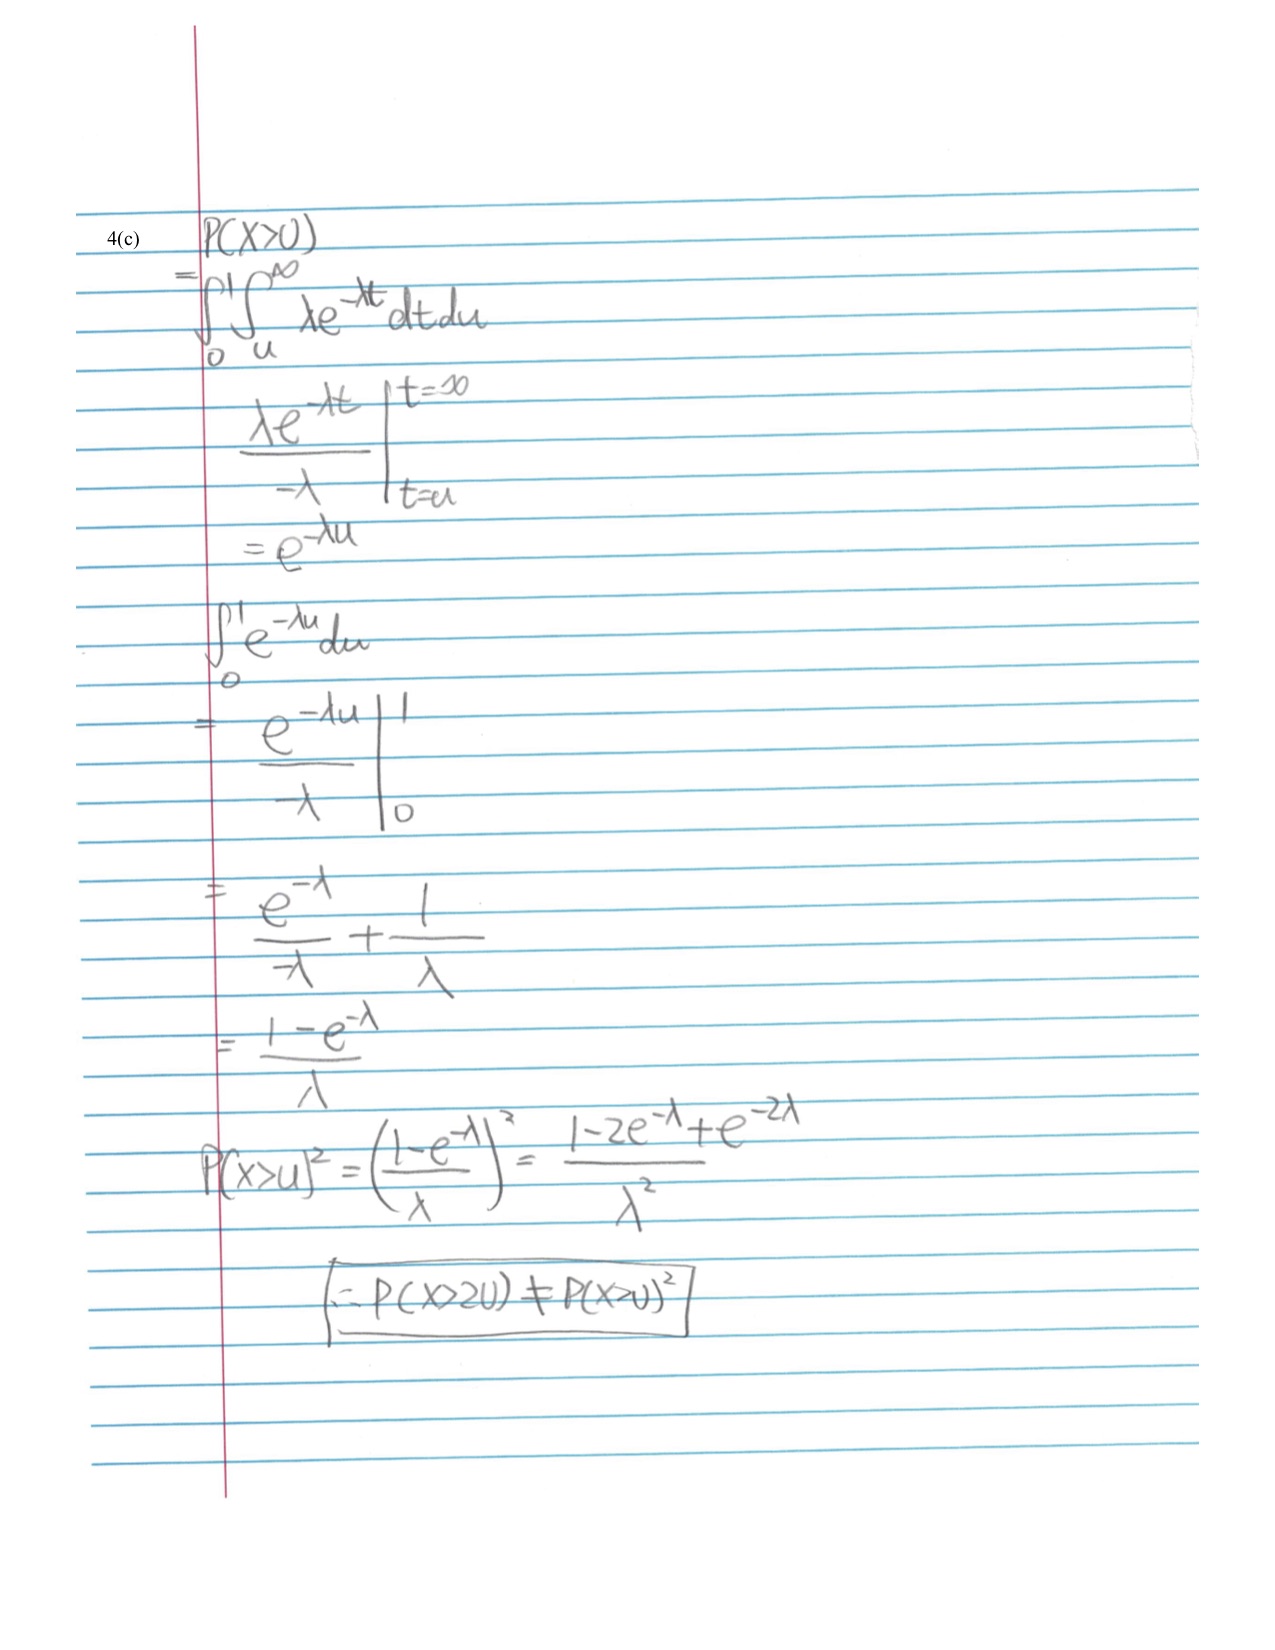 4(c) P(X>U)
= ∫₀¹ ∫ᵤ^∞ λe^(-λt) dt du
λe^(-λt) / -λ |_(t=u)^(t=∞)
= e^(-λu)
∫₀¹ e^(-λu) du
= e^(-λu) / -λ |₀¹
= e^(-λ) / -λ + 1 / λ
= 1 - e^(-λ) / λ
P(X>U)² = (1-e^(-λ) / λ)² = 1-2e^(-λ)+e^(-2λ) / λ²
= P(X>2U) ≠ P(X>U)²